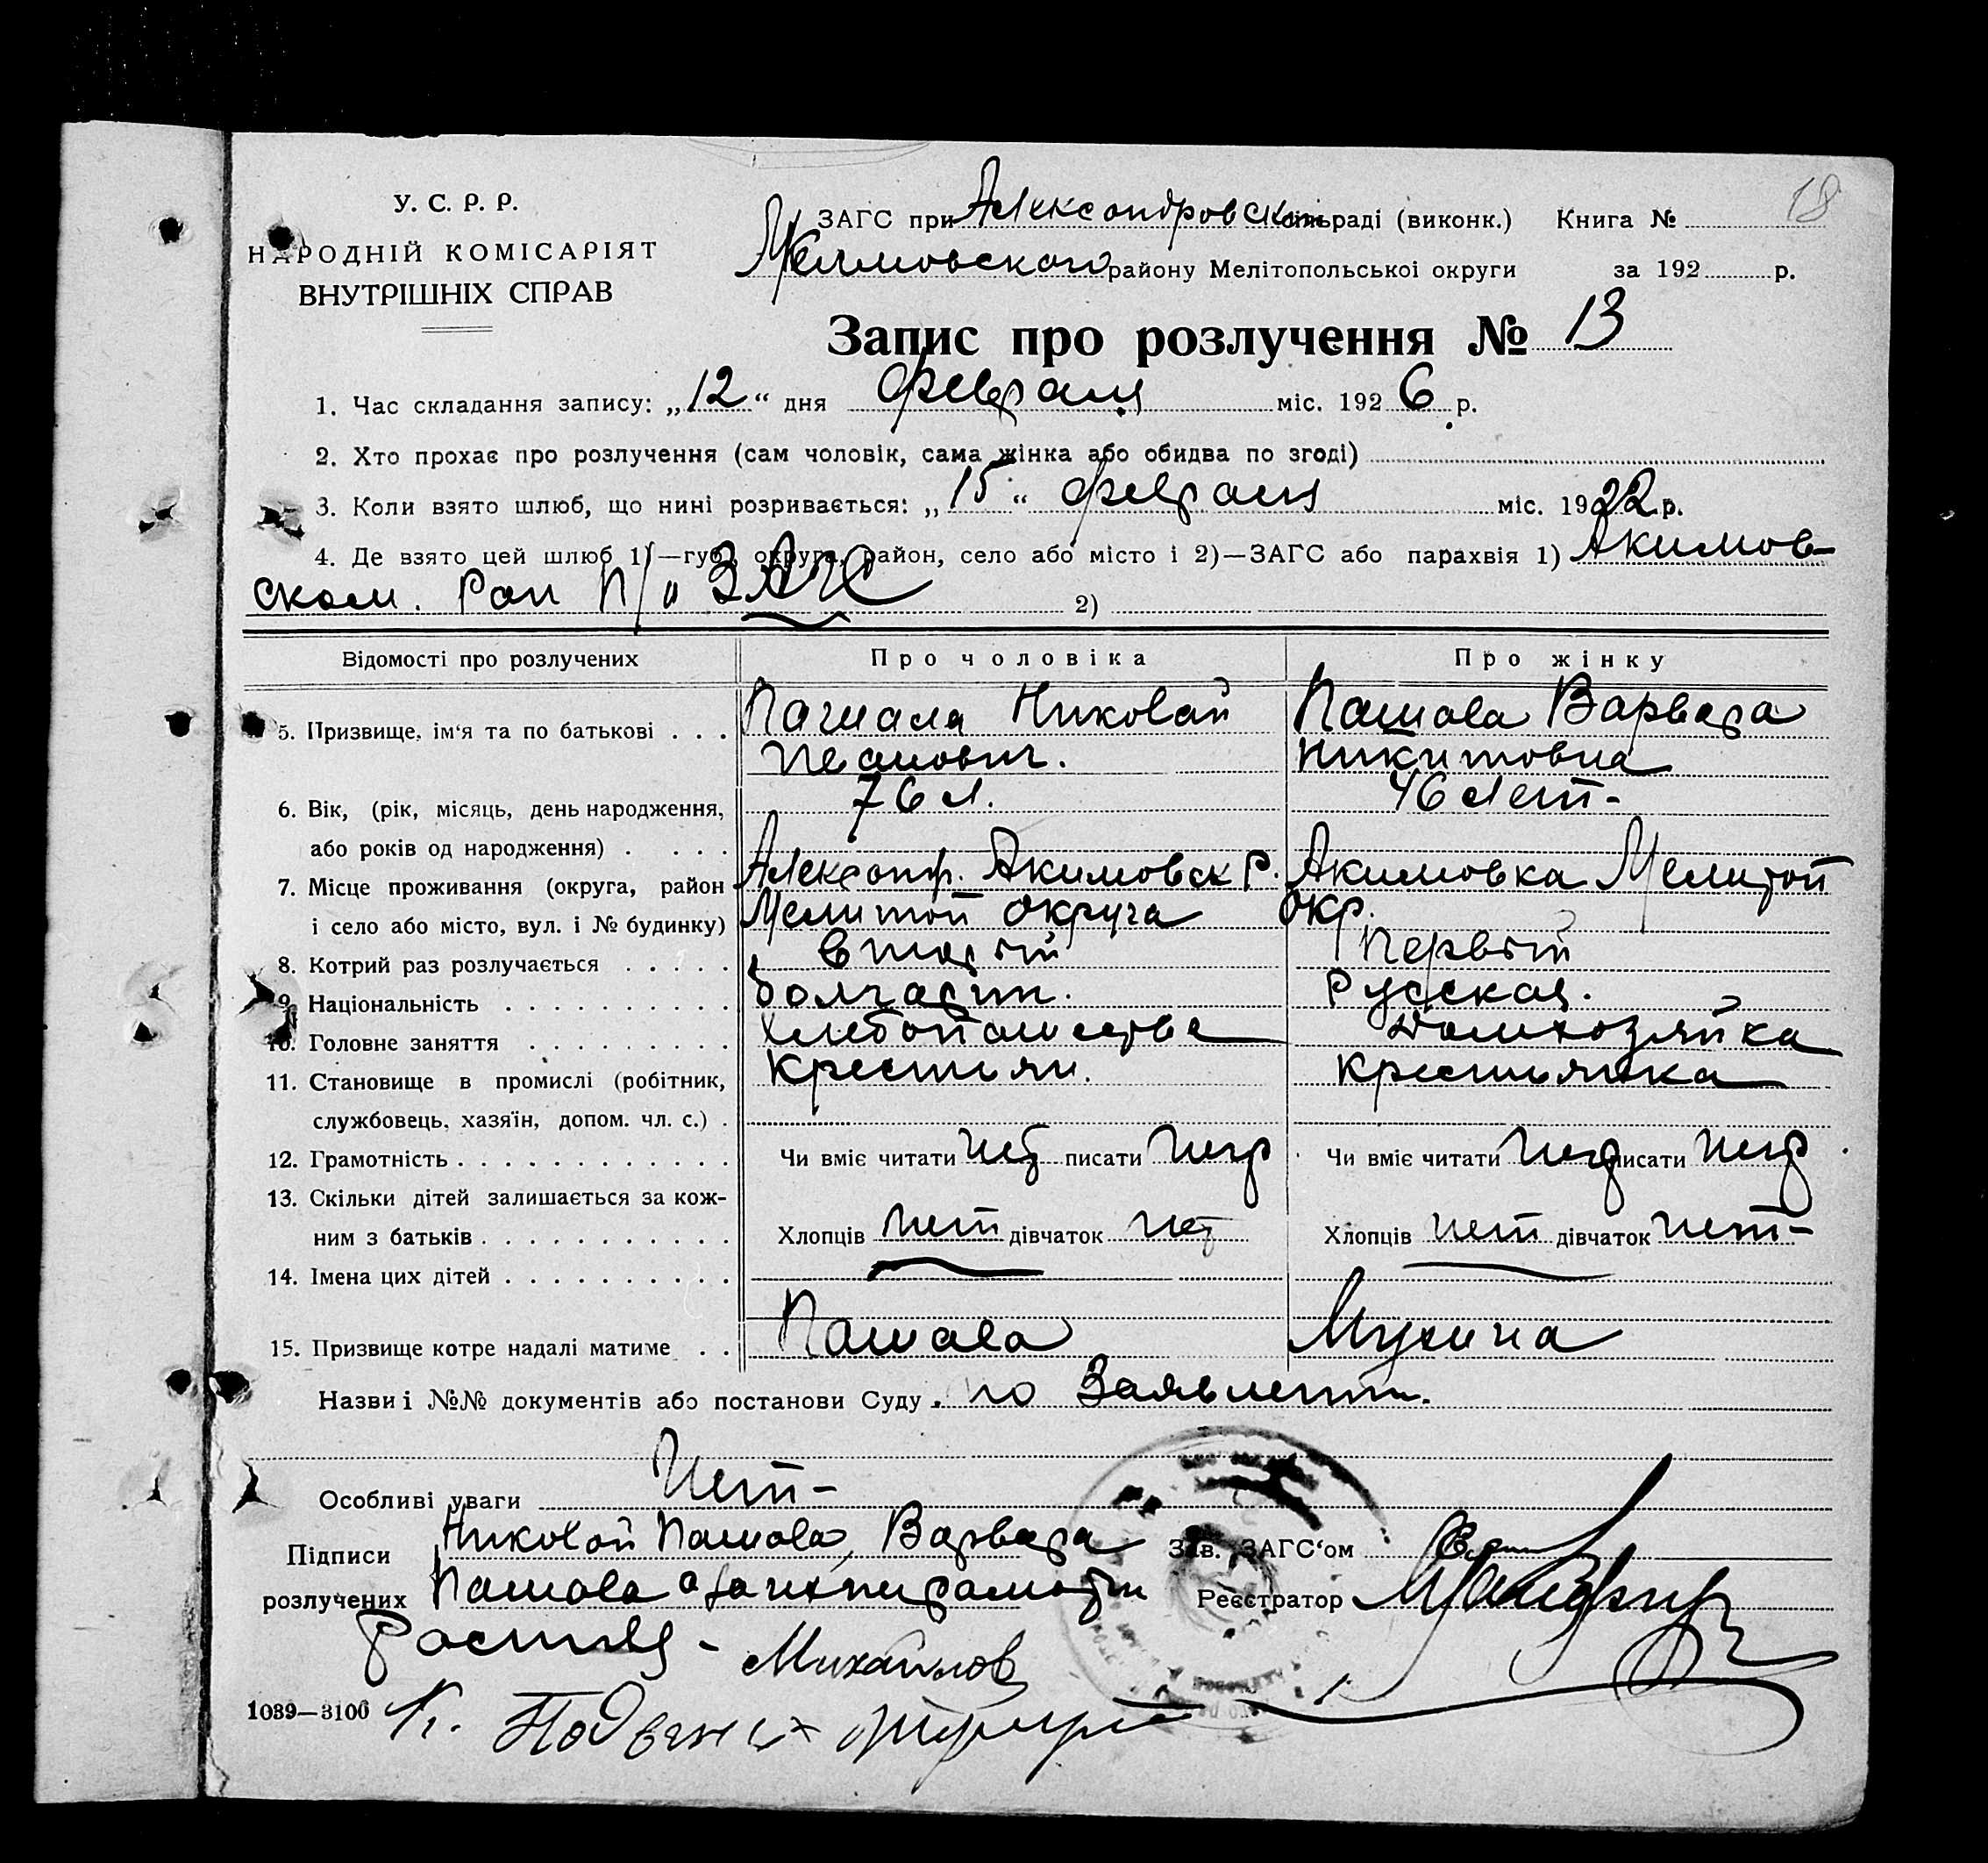 18
У. С. Р. Р.
НАРОДНІЙ КОМІСАРІЯТ
ВНУТРІШНІХ СПРАВ
ЗАГС при Александровск сільраді (виконк.) Книга №
району Мелітопольської округи за 192 р.
Запис про розлучення № 13
1. Час складання запису: „12“ дня февраля міс. 1926 р.
2. Хто прохає про розлучення (сам чоловік, сама жінка або обидва по згоді)
3. Коли взято шлюб, що нині розривається: „15“ февраля міс. 1922 р.
4. Де взято цей шлюб 1)—губ., округа, район, село або місто і 2)—ЗАГС або парахвія 1) Акимов-
ском. Рай п/о ЗАГС 2)
Відомості про розлучених Про чоловіка Про жінку
5. Призвище, ім‘я та по батькові . . . Пашала Николай Пашова Варвара
Никитовна
6. Вік, (рік, місяць, день народження, 76 л. 46 лет -
або років од народження) . . . .
7. Місце проживання (округа, район Александр. Акимовск Р. Акимовка Мелитоп
і село або місто, вул. і № будинку) Мелитоп округа Окр.
8. Котрий раз розлучається . . . . . второй Первый
9. Національність . . . . . . . . . . болгарин. Русская.
10. Головне заняття . . . . . . . . . хлебопашество Домхозяйка
11. Становище в промислі (робітник, крестьян. крестьянка
службовець, хазяїн, допом. чл. с.) .
12. Грамотність . . . . . . . . . . . . Чи вміє читати нет писати нет Чи вміє читати нет писати нет
13. Скільки дітей залишається за кож-
ним з батьків . . . . . . . . . . . Хлопців нет дівчаток нет Хлопців нет дівчаток нет -
14. Імена цих дітей . . . . . . . . . .
15. Призвище котре надалі матиме . . Пашова Мухина
Назви і №№ документів або постанови Суду . по Заявлению.
Особливі уваги Нет -
Підписи Николай Пашова, Варвара Зав. ЗАГС‘ом
розлучених Пашова а за их неграмотн Реєстратор
Роспис - Михайлов
1089—3100